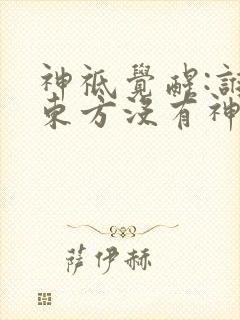 神祗覺醒:誰
東方沒有神
薩伊赫